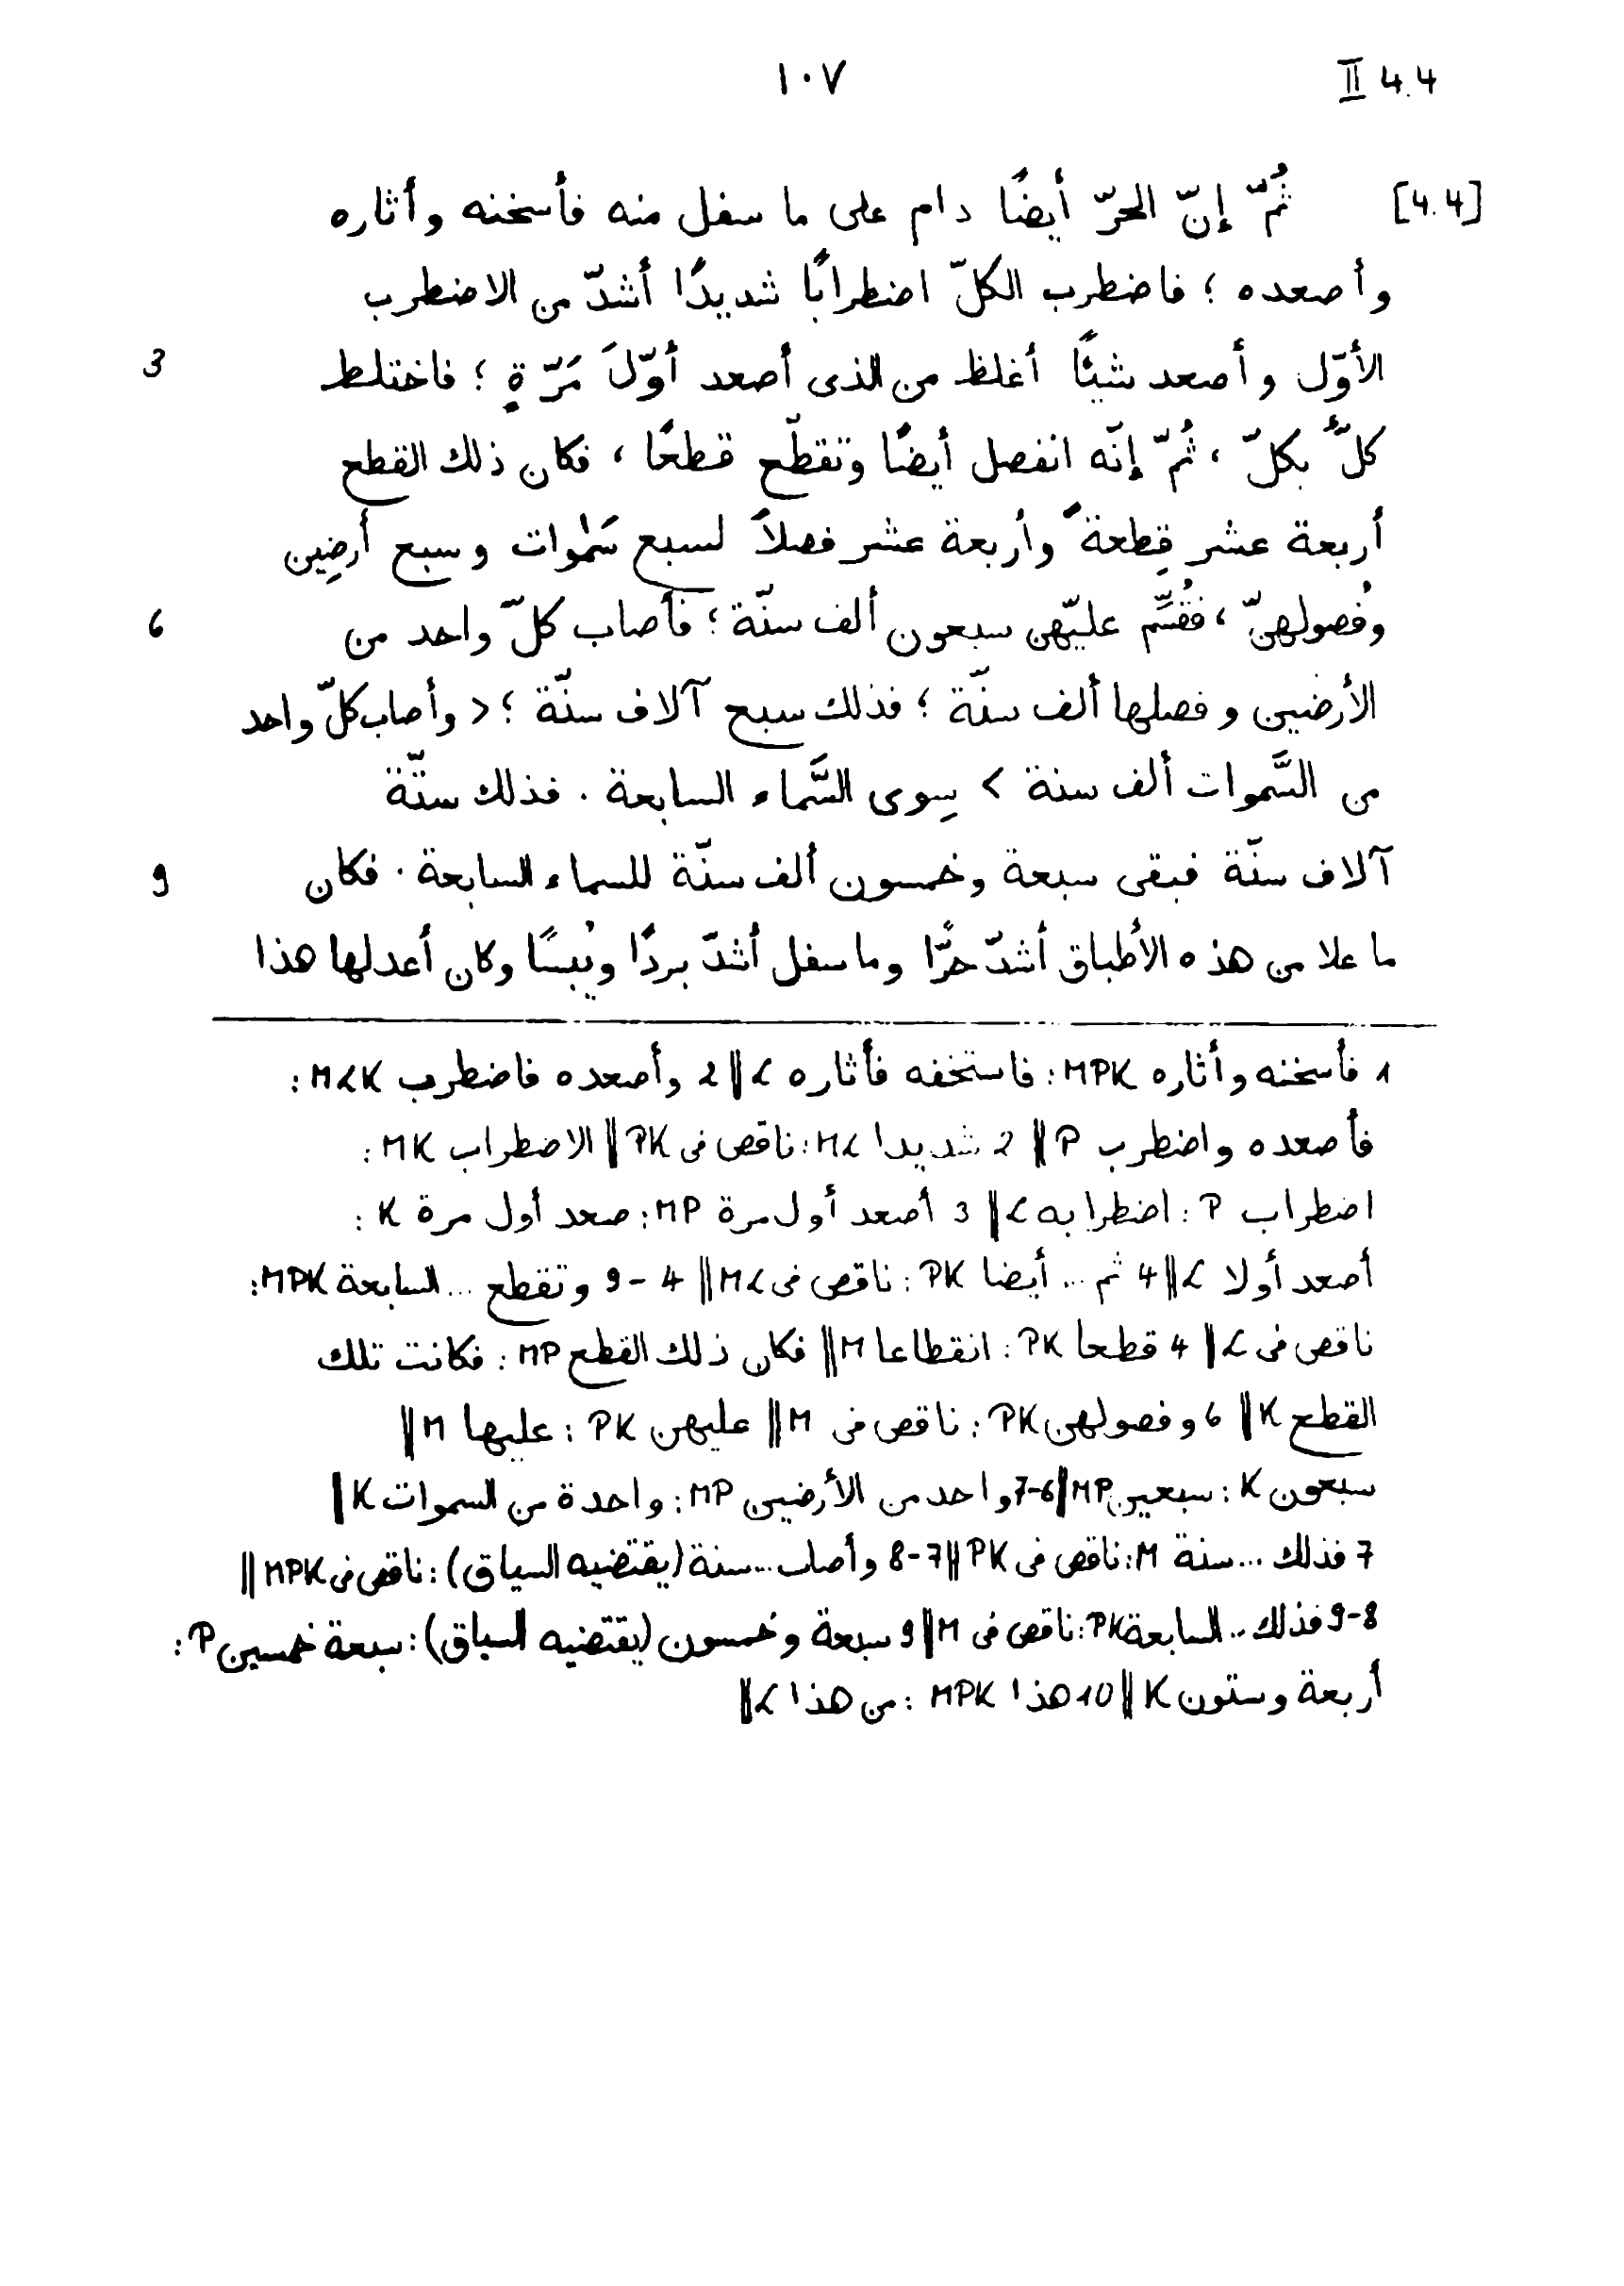 II 4.4
١٠٧
[4.4] ثُمّ إنّ الحرّ أيضًا دام على ما سفل منه فأسخنه وأثاره
وأصعده ؛ فاضطرب الكلّ اضطرابًا شديدًا أشدّ من الاضطرب
3 الأوّل وأصعد شيئًا أغلظ من الذى أصعد أوّلَ مَرّةٍ ؛ فاختلط
كلٌّ بكلّ ، ثُمّ إنّه انفصل أيضًا وتقطّع قطعًا ، فكان ذلك القطع
أربعة عشر قِطعةً وأربعة عشر فصلاً لسبع سَمٰوات وسبع أرضِين
6 وفُصولهنّ ، فقُسِّم عليّهن سبعون ألف سنّة ؛ فأصاب كلّ واحد من
الأرضين وفصلها ألف سنّة ؛ فذلك سبع آلاف سنّة ؛ < وأصاب كلّ واحد
من السَّموات ألف سنة > سِوى السَّماء السابعة . فذلك ستّة
9 آلاف سنّة فبقى سبعة وخمسون ألف سنّة للسماء السابعة . فكان
ما علا من هذه الأطباق أشدّ حرًّا وما سفل أشدّ بردًا ويُبسًا وكان أعدلها هذا
1 فأسخنه وأثاره MPK : فاستخفه فأثاره L || 2 وأصعده فاضطرب MLK :
فأصعده واضطرب P || 2 شديدا ML : ناقص فى PK || الاضطراب MK :
اضطراب P : اضطرابه L || 3 أصعد أول مرة MP : صعد أول مرة K :
أصعد أولا L || 4 ثم ... أيضا PK : ناقص فى ML || 4 - 9 وتقطع ... السابعة MPK :
ناقص فى L || 4 قطعا PK : انقطاعا M || فكان ذلك القطع MP : فكانت تلك
القطع K || 6 وفصولهن PK : ناقص فى M || عليهن PK : عليها M ||
سبعون K : سبعين MP || 6-7 واحد من الأرضين MP : واحدة من السموات K ||
7 فذلك ... سنة M : ناقص فى PK || 7-8 وأصاب ... سنة (يقتضيه السياق) : ناقص فى MPK ||
8-9 فذلك .. السابعة PK : ناقص فى M || 9 سبعة وخمسون (يقتضيه السياق) : سبعة خمسين P :
أربعة وستون K || 10 هذا MPK : من هذا L ||